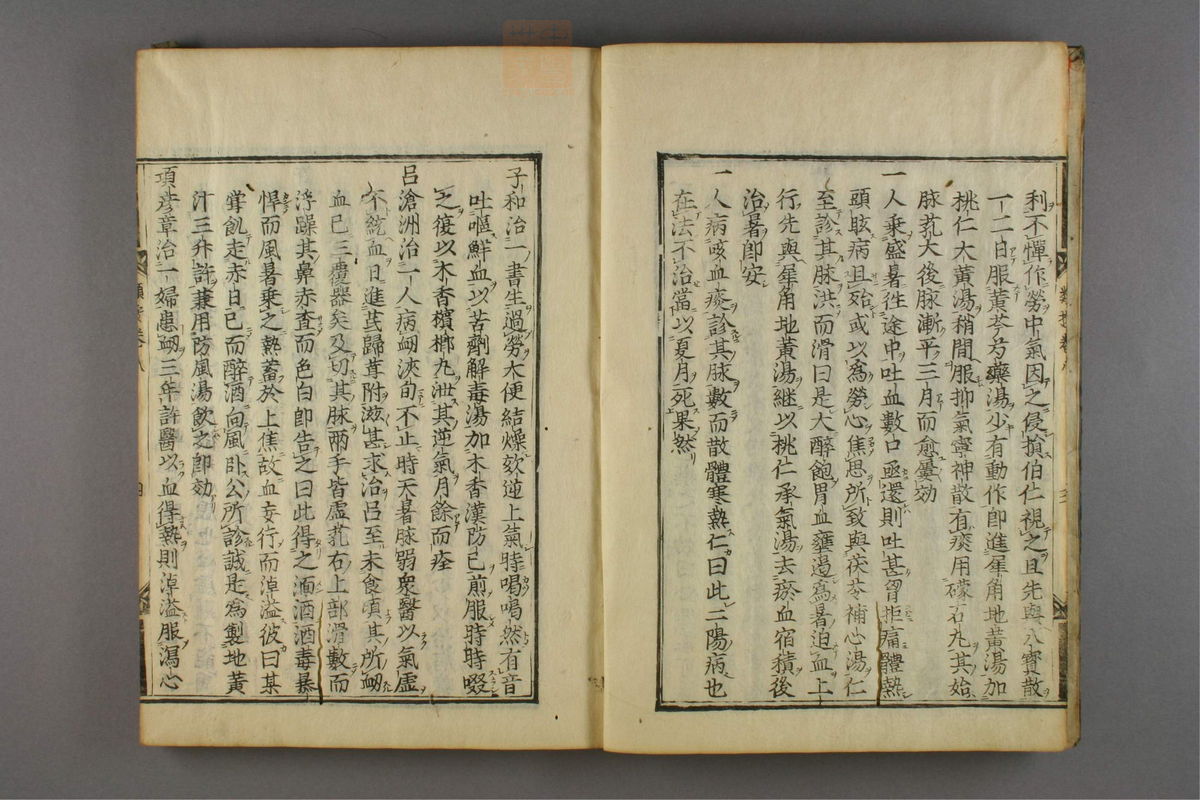 利不憚作勞中氣因之侵損伯仁視之且先與八寶散
一二日服黃芩芍藥湯少有動作卽進犀角地黃湯加
桃仁大黃湯稍間服抑氣寧神散有痰用礞石丸其始
脉芤大後脉漸平三月而愈屢効
一人乘盛暑徃途中吐血數口亟還則吐甚胷拒痛體熱
頭眩病且殆或以為勞心焦思所致與茯苓補心湯仁
至診其脉洪而滑曰是大醉飽胃血壅遏為暑迫血上
行先與犀角地黃湯繼以桃仁承氣湯去瘀血宿積後
治暑卽安
一人病咳血痰診其脉數而散體寒熱仁曰此二陽病也
在法不治當以夏月死果然
子和治一書生過勞大便結燥欬逆上氣時喝喝然有音
吐嘔鮮血以苦劑解毒湯加木香漢防己煎服時時啜
之復以木香檳榔丸泄其逆氣月餘而痊
呂滄洲治一人病衂浹旬不止時天暑脉弱衆醫以氣虛
不統血日進茋歸茸附滋甚求治呂至未食頃其所衂
血已三覆器矣及切其脉兩手皆虛芤右上部滑數而
浮躁其鼻赤査而色白卽告之曰此得之湎酒酒毒暴
悍而風暑乘之熱蓄於上焦故血妄行而淖溢彼曰某
嘗飢走赤日已而醉酒向風卧公所診誠是為製地黃
汁三升許兼用防風湯飲之卽効
項彥章治一婦患衂三年許醫以血得熱則淖溢服瀉心